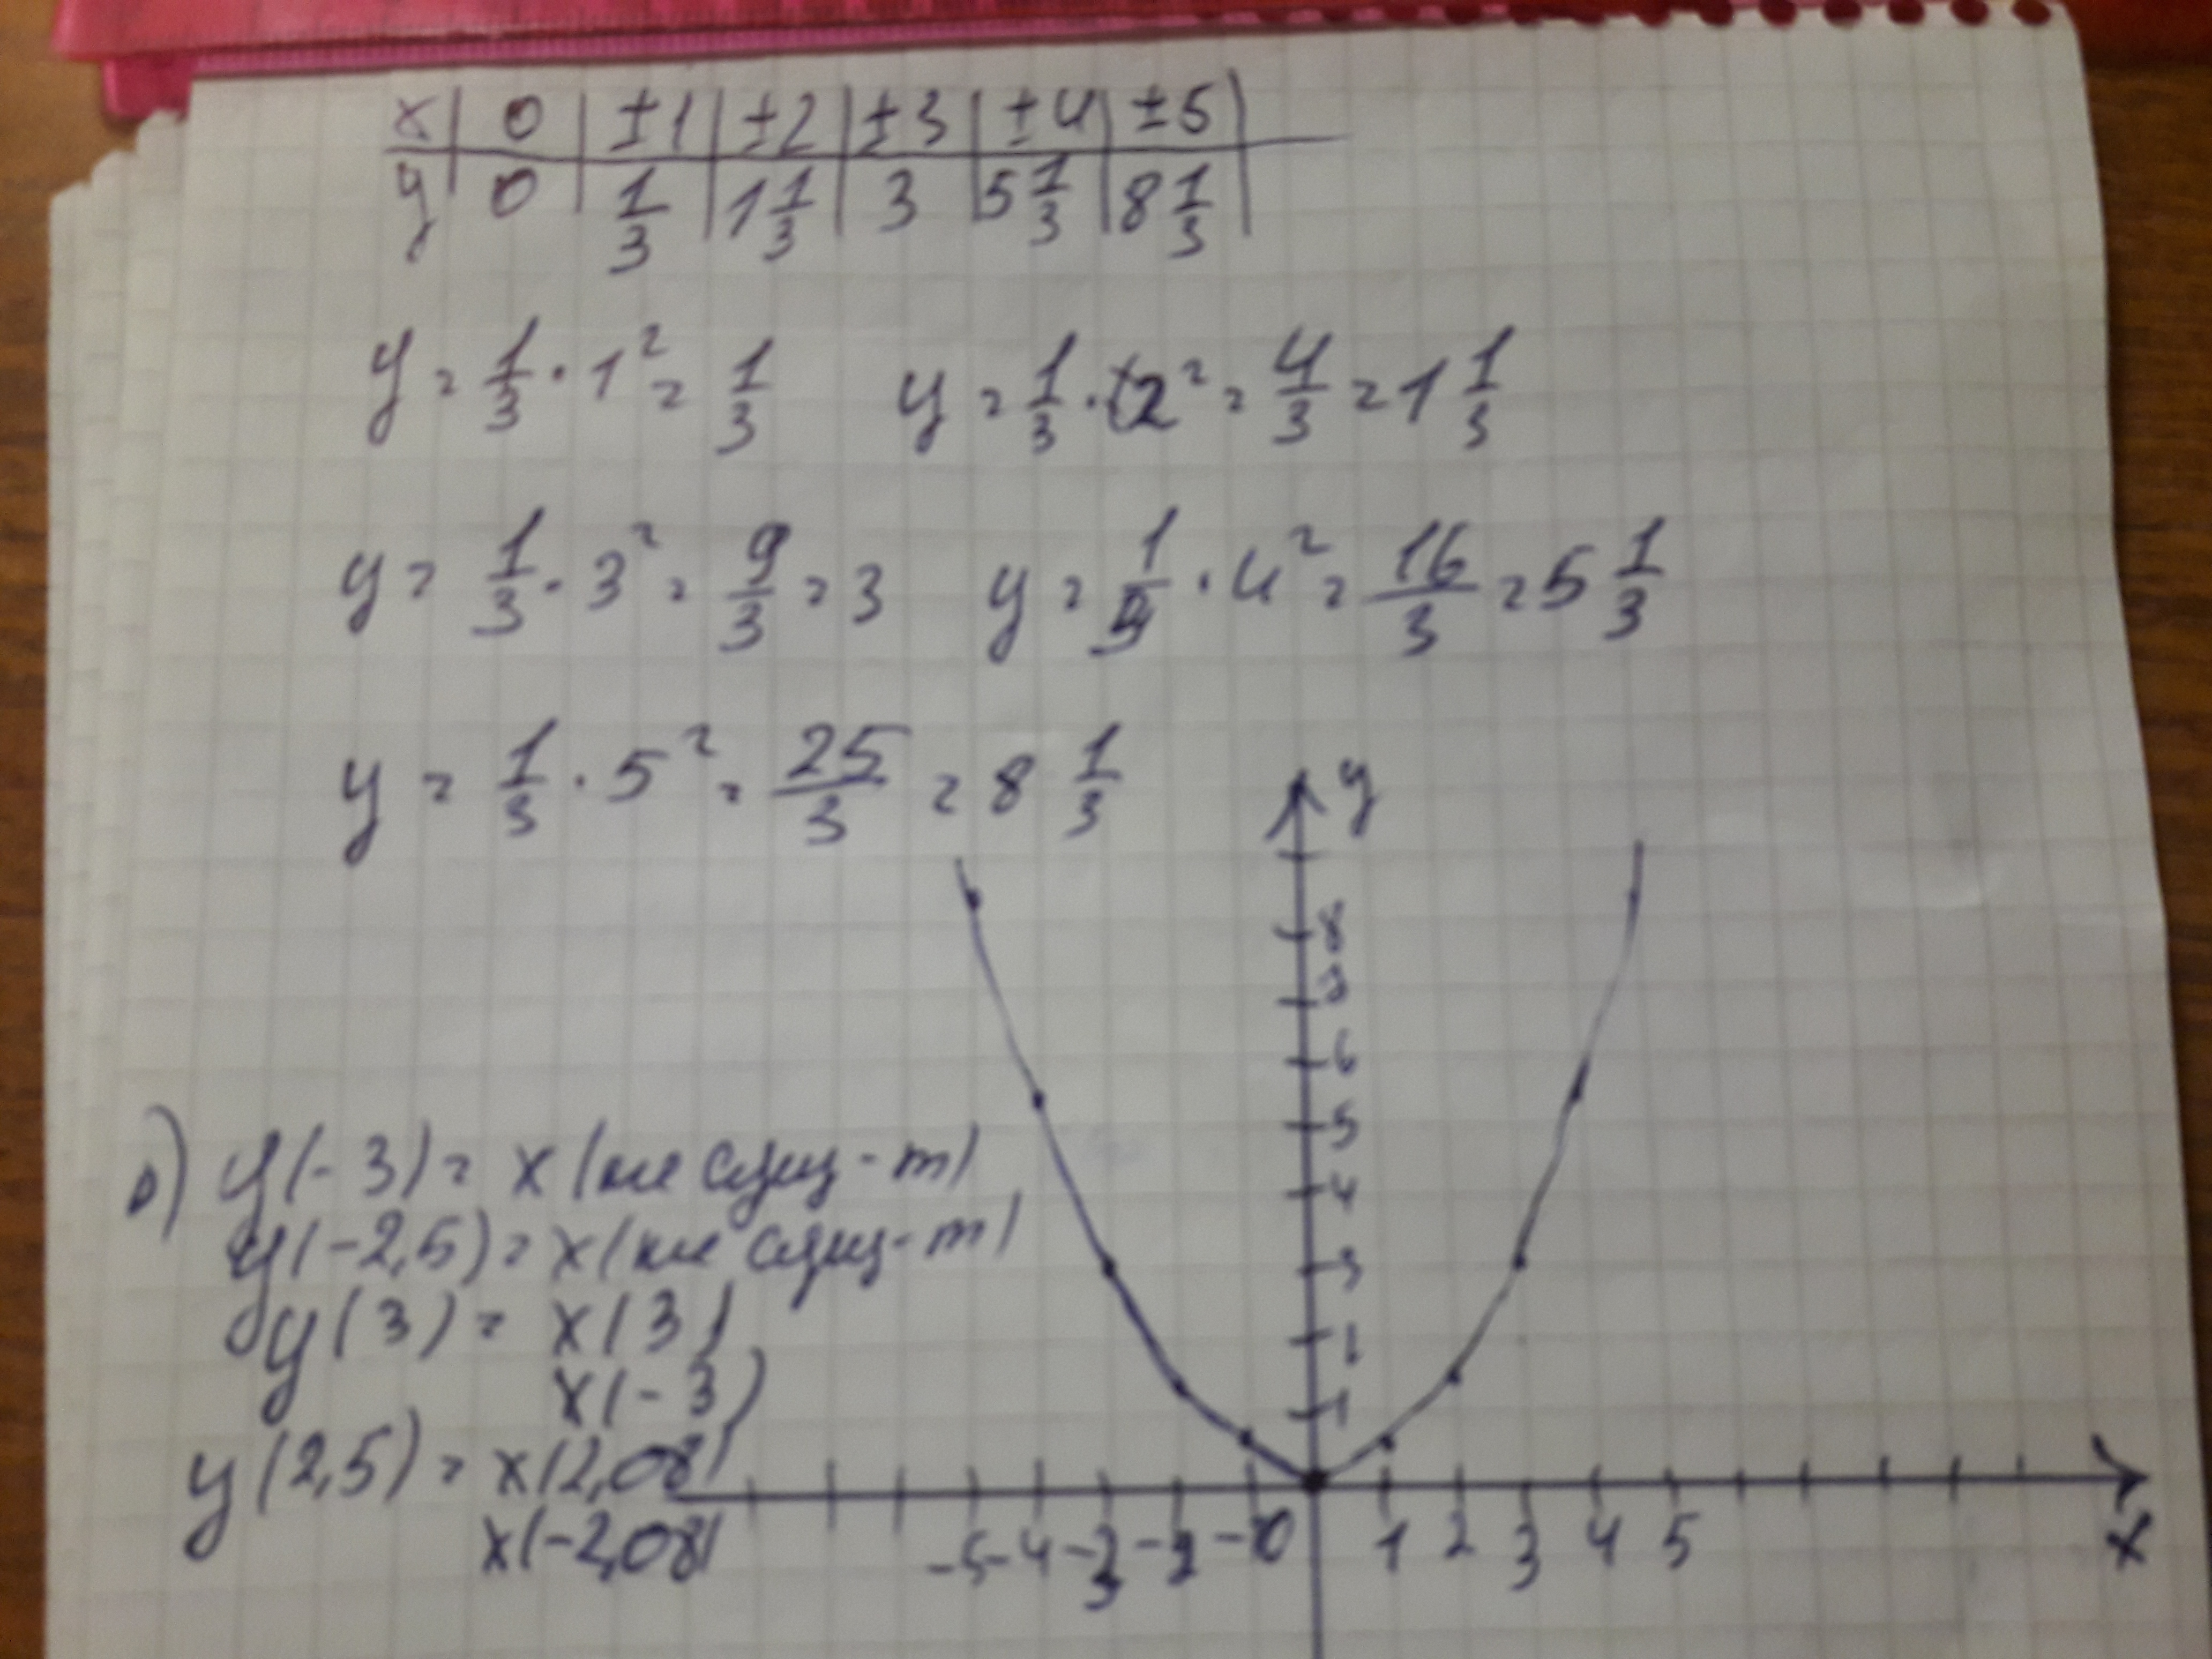 x | 0 | ±1 | ±2 | ±3 | ±4 | ±5
y | 0 | 1/3 | 1 1/3 | 3 | 5 1/3 | 8 1/3
y = 1/3 · 1² = 1/3 y = 1/3 · 2² = 4/3 = 1 1/3
y = 1/3 · 3² = 9/3 = 3 y = 1/3 · 4² = 16/3 = 5 1/3
y = 1/3 · 5² = 25/3 = 8 1/3
y
8
7
6
5
4
3
2
1
y(-3) = x (не сущ-т)
y(-2,5) = x (не сущ-т)
y(3) = x(3)
x(-3)
y(2,5) = x(2,08)
x(-2,08)
-5 -4 -3 -2 -1 0 1 2 3 4 5 x